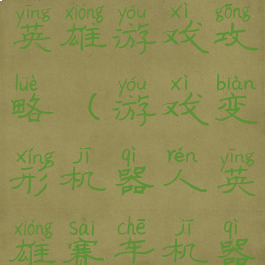 yīng xióng yóu xì gōng
英雄游戏攻
lüè yóu xì biàn
略(游戏变
xíng jī qì rén yīng
形机器人英
xióng sài chē jī qì
雄赛车机器